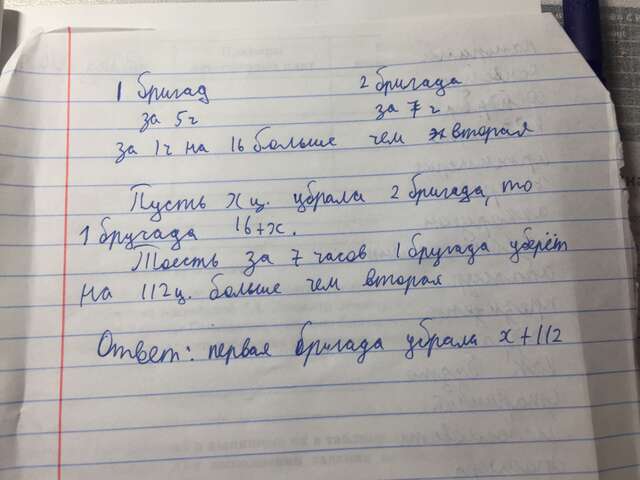 1 бригад 2 бригада
за 5ч за 7ч
за 1ч на 16 больше чем вторая
Пусть х ц. убрали 2 бригада, то
1 бругада 16+х.
Тоесть за 7 часов 1 бругада уберёт
на 112ц. больше чем вторая
Ответ: первая бригада убрала х+112